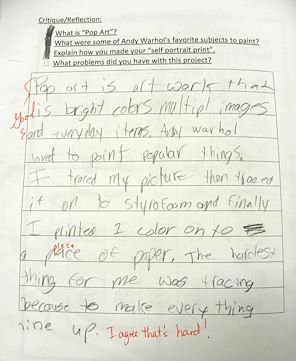 Critique/Reflection:
What is "Pop Art"?
What were some of Andy Warhol's favorite subjects to paint?
Explain how you made your "self portrait print".
What problems did you have with this project?
Pop art is art work that
Good is bright colors multipl images
and everyday items. Andy warhol
loved to paint popular things.
I traced my picture then traced
it on to styrofoam and finally
I printed 1 color on to
piece
a place of paper. The hardest
thing for me was tracing
because to make every thing
line up. I agree that's hard!